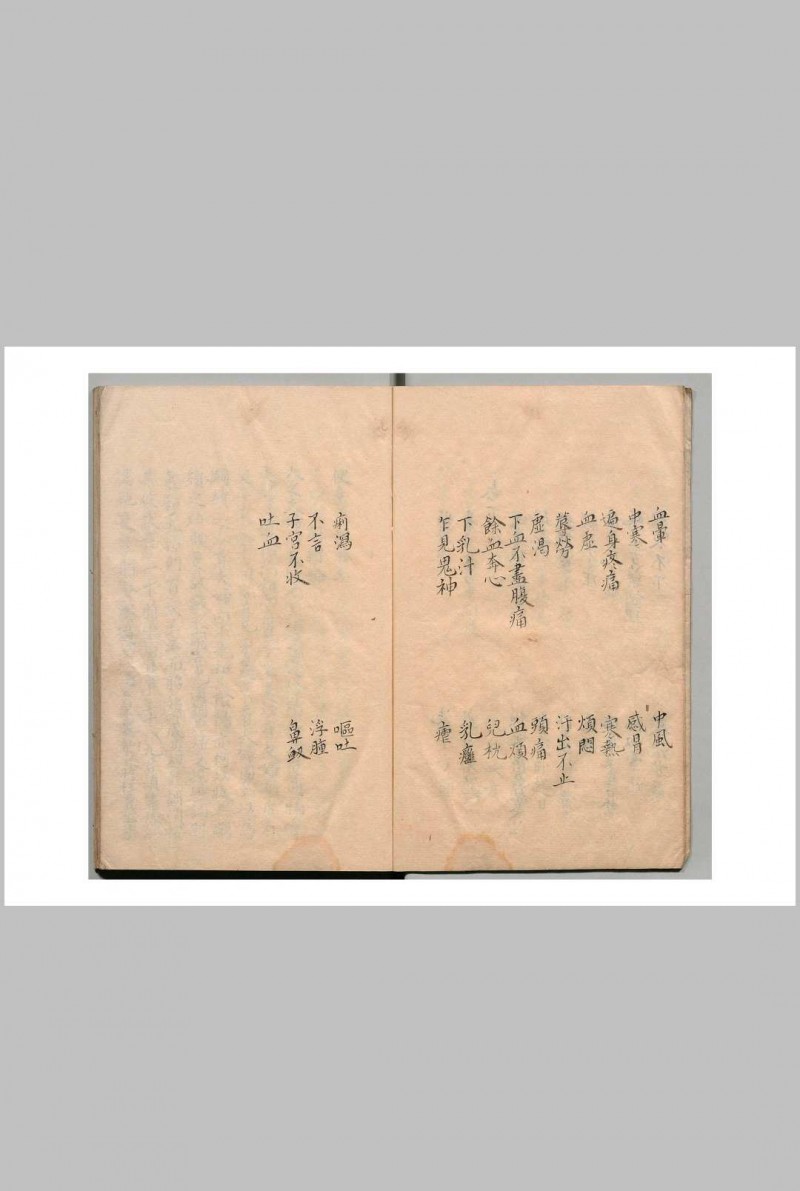 血暈 中風
中寒 感冒
遍身疼痛 寒熱
血虛 煩悶
蓐勞 汗出不止
虛渴 頭痛
下血不盡腹痛 血煩
餘血奔心 兒枕
下乳汁 乳癰
乍見鬼神 瘧
痢瀉 嘔吐
不言 浮腫
子宮不收 鼻衂
吐血